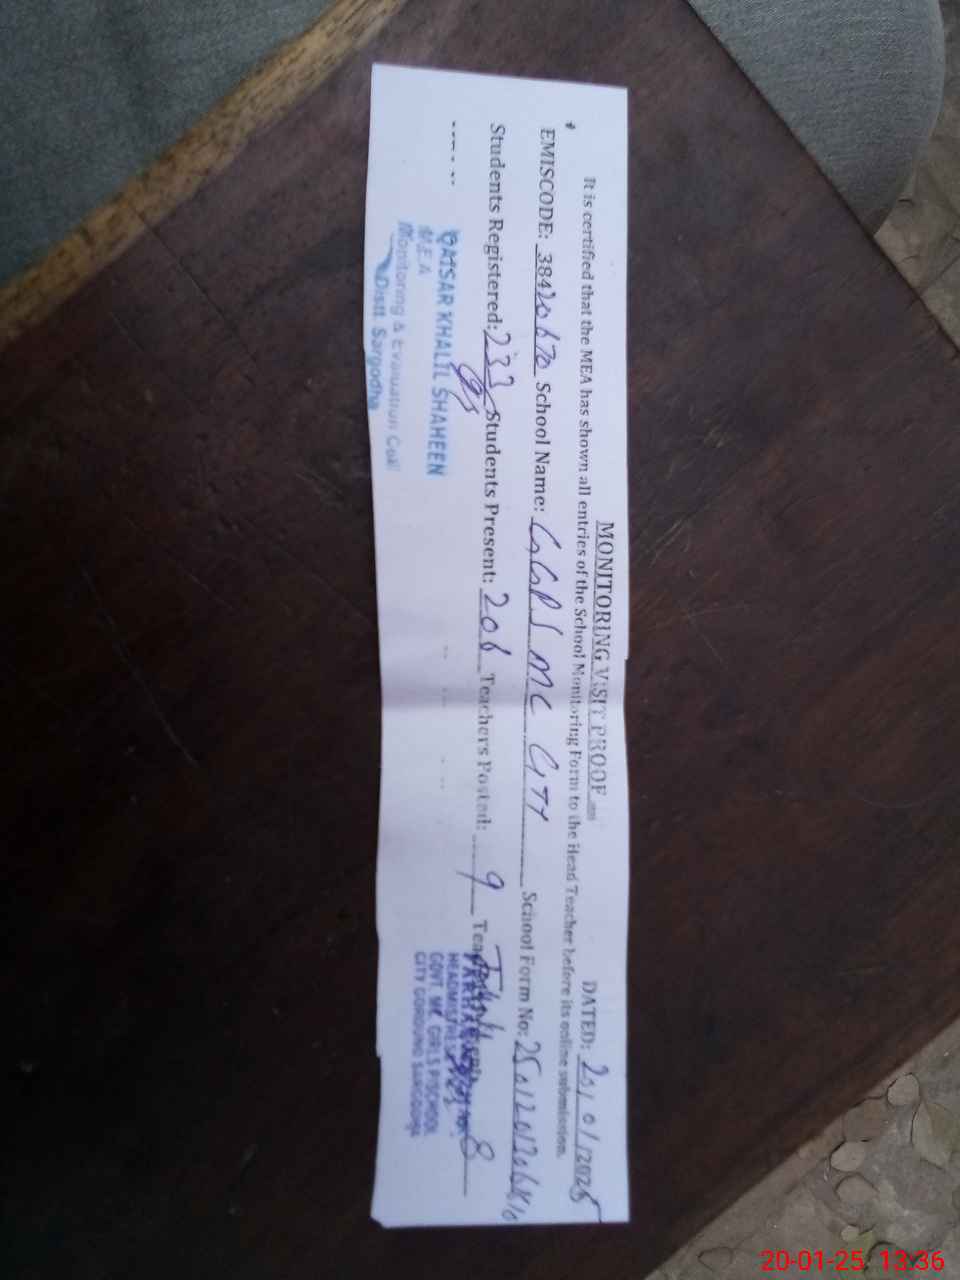 MONITORING VISIT PROOF
DATED: 20/01/2025
It is certified that the MEA has shown all entries of the School Monitoring Form to the Head Teacher before its online submission.
EMISCODE: 38420670 School Name: GGPS MC CITY School Form No:
Students Registered: 233 Students Present: 206 Teachers Posted: 9 8
QAISAR KHALIL SHAHEEN
M.E.A
Monitoring & Evaluation Cell
Distt. Sargodha
HEADMISTRESS
GOVT. MC GIRLS P/SCHOOL
CITY GOROUND SARGODHA
20-01-25, 13:36